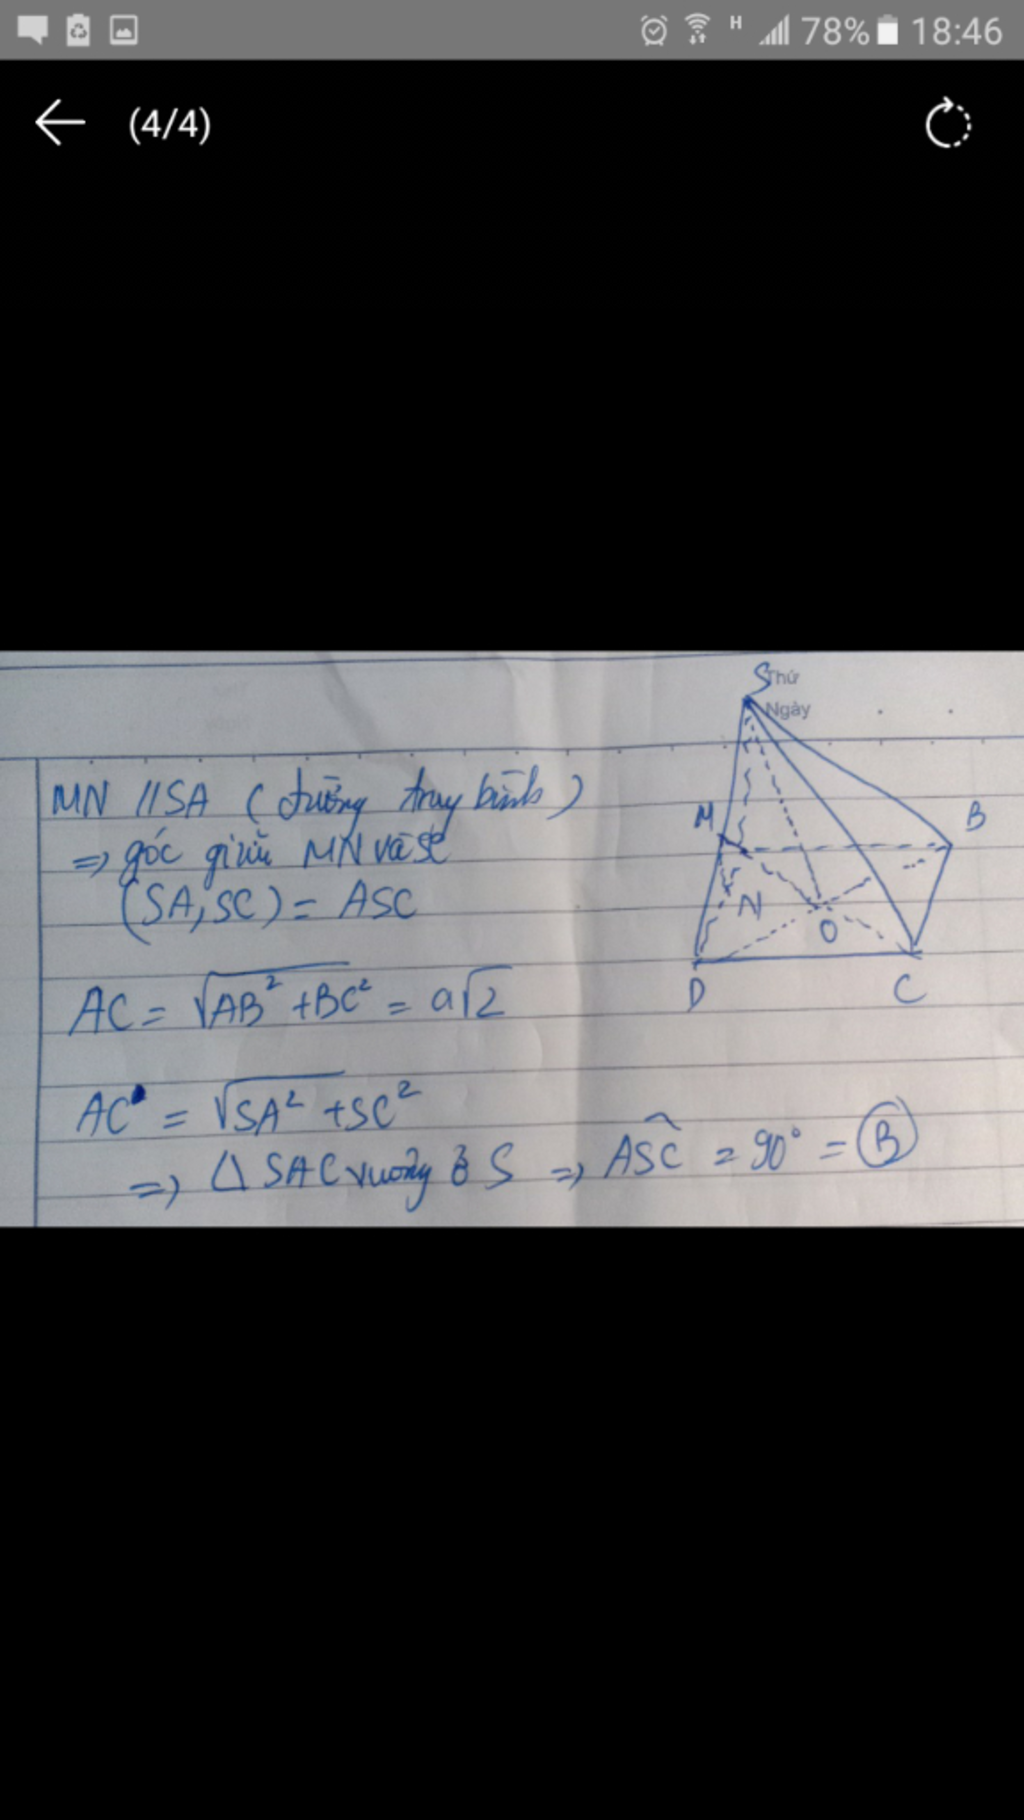 78% 18:46
(4/4)
Thứ
Ngày
S
M
B
N
O
D
C
MN // SA (đường trung bình)
=> góc giữa MN và SC
(SA, SC) = ASC
AC = √AB² + BC² = a√2
AC = √SA² + SC²
=> Δ SAC vuông ở S => ASC = 90° = B